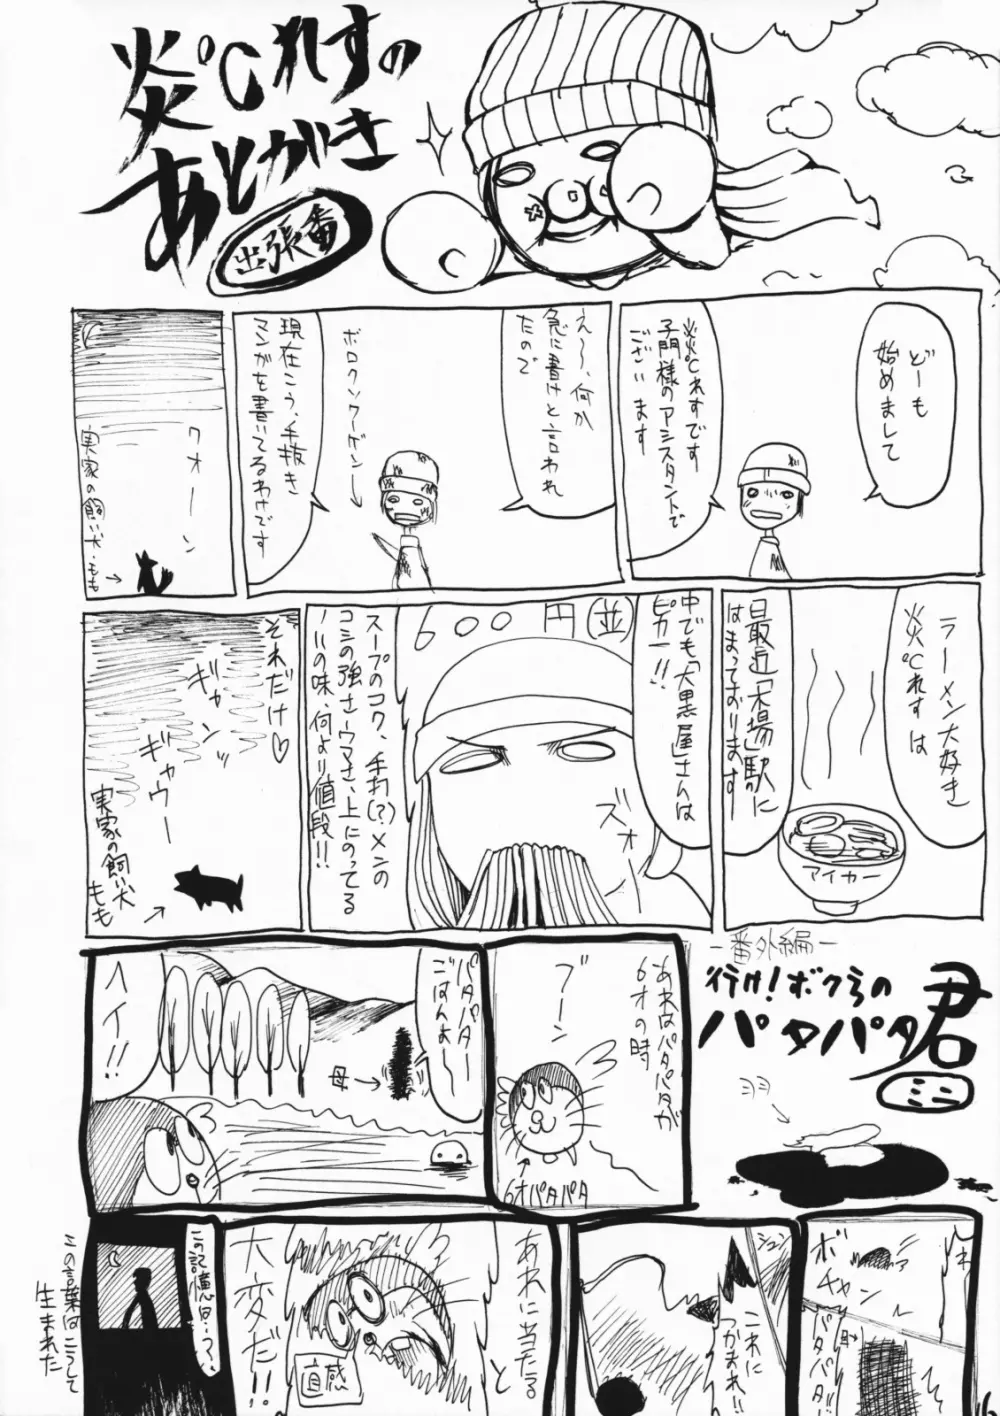 炎℃れすの
あとがき
出張番
どーも
始めまして
炎℃れすです
子門様のアシスタントで
ございます
え〜、何か
急に書けと言われ
たので
ボロクソクーゲン→
現在こう、手抜き
マンガを書いてるわけです
ワオーーン
実家の飼い犬・もも→
ラーメン大好き
炎℃れすは
アイカー
最近「木場」駅の
はまっております
中でも「大黒屋」さんは
ピカー!!
600円(並)
ズォーー
スープのコク、手打(?)メンの
コシの強さ、ウマさ、上にのってる
ノリの味、何より値段!!
それだけ♡
ギャンッ
ギャウー
実家の飼い犬
もも→
-番外編-
行け!ボクらの
パタパタ君
ミニ
ヨヨ
あれはパタパタが
6才の時
ブーン
6才パタパタ
パタパター
ごはんよ〜
母→
ヘイ!!
ボチャン
パタパタ
母→
これに
つかまれ!!
あれに当たると
大変だ!!
直感
この記憶は・・・
この言葉はこうして
生まれた